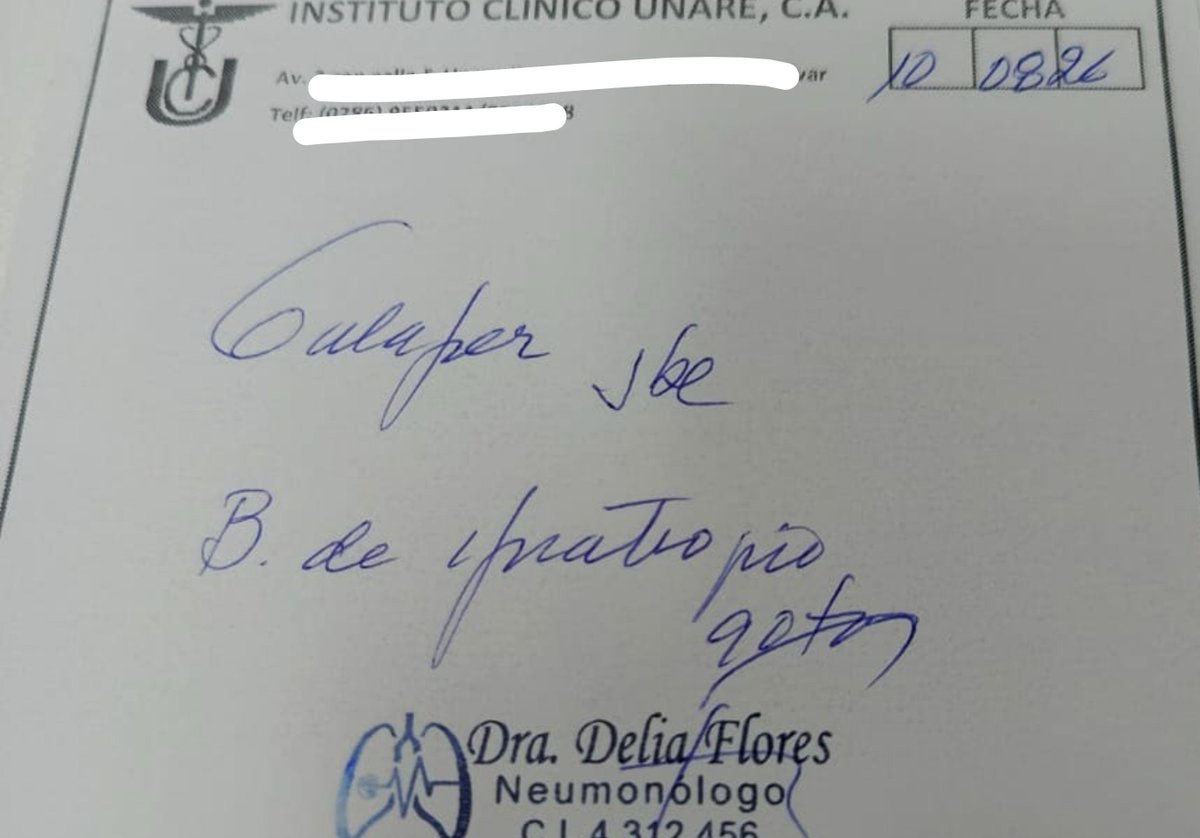 INSTITUTO CLINICO UNARE, C.A.
FECHA
10 08 26
Av.
Telf:
jbe
B. de ipratropio
gotas
Dra. Delia Flores
Neumonólogo
C.I. 4.312.456